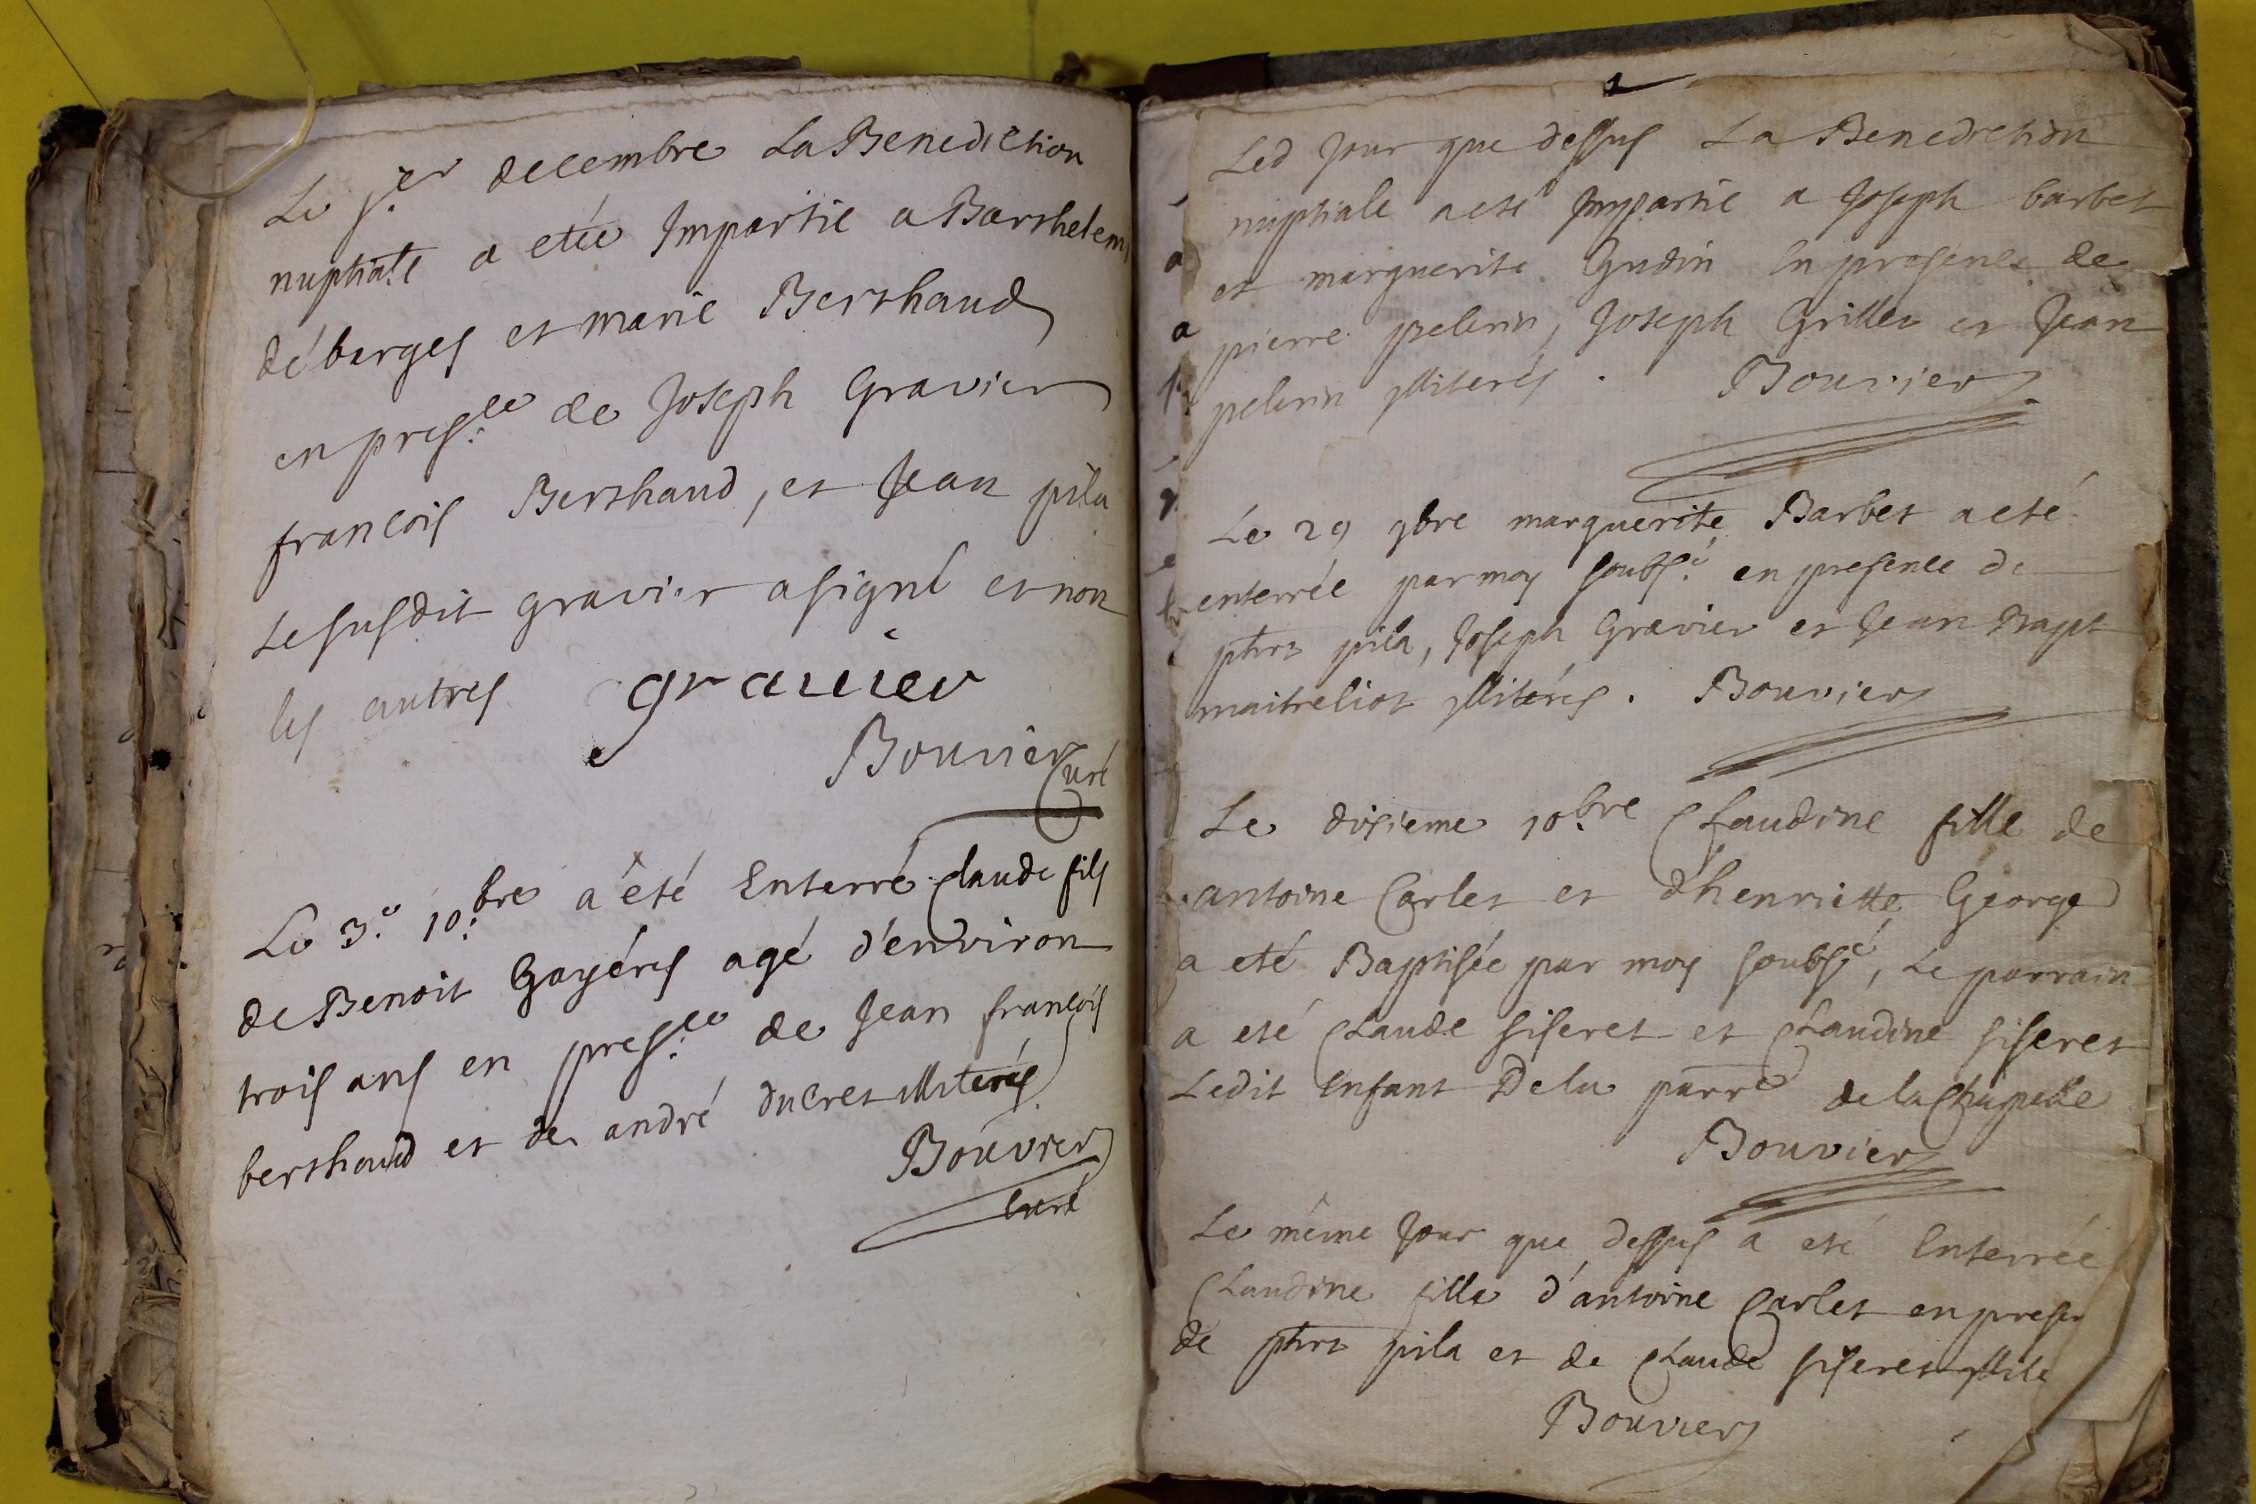 Le j.er decembre La Benediction
nuptiale a etée Impartie a Barthelem
débarges et marie Berthaud
en presce de Joseph Gravier
francois Berthaud, et Jean pila
Le susdit gravier a signé et non
les autres gravier
Bouvier
Curé
Le 3.e 10.bre a été Enterré Claude fils
de Benoit Gayéres agé d'environ
trois ans en presce de Jean francois
berthaud et de andré ducret illiterés
Bouvier
Curé
1
Led jour que dessus La Benediction
nuptiale a eté Impartie a Joseph barbet
et marguerite Gudin En presence de
pierre pelerin, Joseph Grillet et Jean
pelerin illiterés. Bouvier
Le 29 9bre marguerite Barbet a eté
enterrée par moy soubsé en presence de
phrt pila, Joseph Gravier et Jean Bapt
maitreliot illiterés. Bouvier
Le disieme 10.bre Claudine fille de
antoine Carlet et d'henriette George
a eté Baptisée par moy soubsé, Le parrain
a eté Claude siseret et Claudine siseret
Ledit Enfant De la parre de la Chapelle
Bouvier
Le même Jour que dessus a eté Enterrée
Claudine fille d'antoine Carlet en presen
de phrt pila et de Claude siseret illite
Bouvier